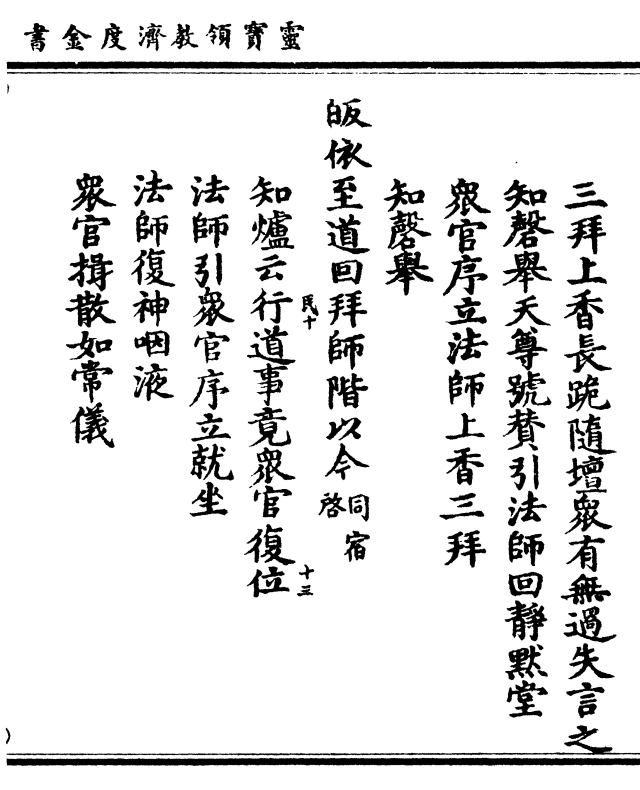 靈寶領教濟度金書
三拜上香長跪隨壇衆有無過失言之
知磬舉天尊號賛引法師回靜默堂
衆官序立法師上香三拜
知磬舉
皈依至道回拜師階以今同宿啓
知爐云行道事竟衆官復位
民十
十三
法師引衆官序立就坐
法師復神咽液
衆官揖散如常儀